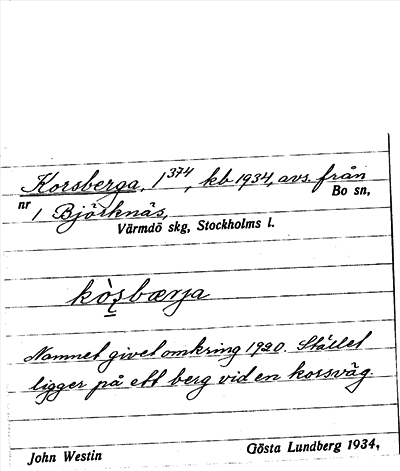 Korsberga, 1³⁷⁴, kb 1934, avs. från
nr 1 Björknäs, Bo sn,
Värmdö skg, Stockholms l.
kòʂbærja
Namnet givet omkring 1920. Stället
ligger på ett berg vid en korsväg
John Westin Gösta Lundberg 1934,